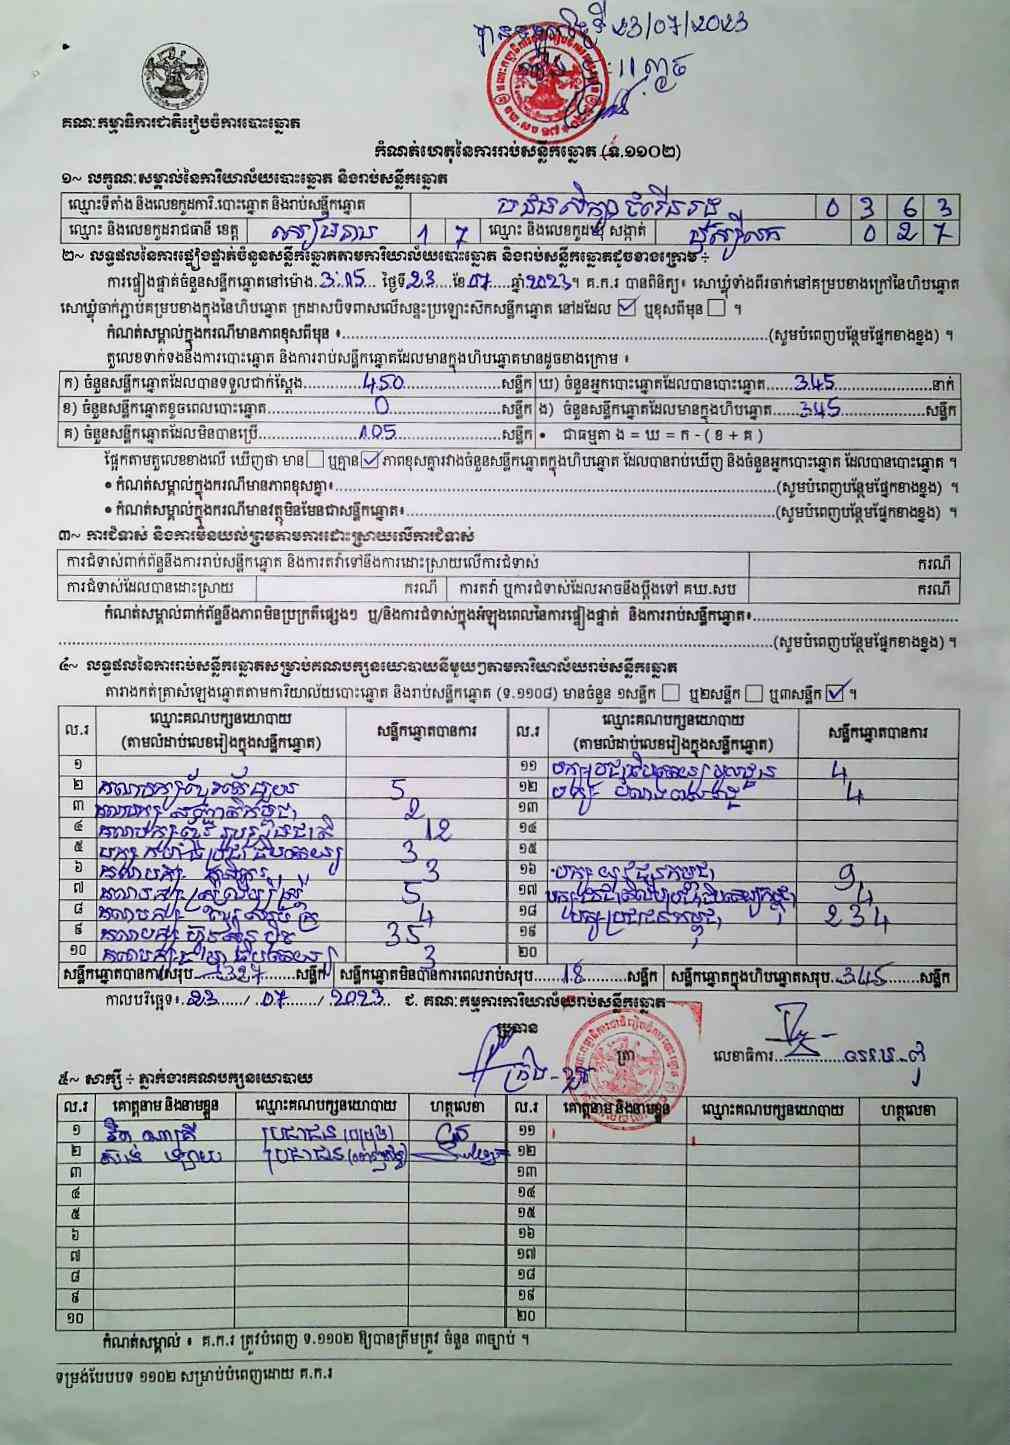 23/07/2023
គណៈកម្មាធិការជាតិរៀបចំការបោះឆ្នោត
កំណត់ហេតុនៃការរាប់សន្លឹកឆ្នោត (ទ.១១០២)
១~ លក្ខណៈសម្គាល់នៃការិយាល័យបោះឆ្នោត និងរាប់សន្លឹកឆ្នោត
ឈ្មោះទីតាំង និងលេខកូដការិ.បោះឆ្នោត និងរាប់សន្លឹកឆ្នោត 0 3 6 3
ឈ្មោះ និងលេខកូដរាជធានី ខេត្ត សៀមរាប 1 7 ឈ្មោះ និងលេខកូដឃុំ សង្កាត់ 0 2 7
២~ លទ្ធផលនៃការផ្ទៀងផ្ទាត់ចំនួនសន្លឹកឆ្នោតតាមការិយាល័យបោះឆ្នោត និងរាប់សន្លឹកឆ្នោតដូចខាងក្រោម ÷
ការផ្ទៀងផ្ទាត់ចំនួនសន្លឹកឆ្នោតនៅម៉ោង 3:15 ថ្ងៃទី 23 ខែ 07 ឆ្នាំ 2023។ គ.ក.រ បានពិនិត្យ៖ សោឃ្លុំទាំងពីរចាក់នៅគម្របខាងក្រៅនៃហិបឆ្នោត
សោឃ្លុំចាក់ភ្ជាប់គម្របខាងក្នុងនៃហិបឆ្នោត ក្រដាសបិទពាសលើសន្ទះប្រឡោះសិកសន្លឹកឆ្នោត នៅដដែល ☑ ឬខុសពីមុន ☐ ។
កំណត់សម្គាល់ក្នុងករណីមានភាពខុសពីមុន ៖ (សូមបំពេញបន្ថែមផ្នែកខាងខ្នង) ។
តួលេខទាក់ទងនឹងការបោះឆ្នោត និងការរាប់សន្លឹកឆ្នោតដែលមានក្នុងហិបឆ្នោតមានដូចខាងក្រោម ៖
ក) ចំនួនសន្លឹកឆ្នោតដែលបានទទួលជាក់ស្ដែង 450 សន្លឹក ឃ) ចំនួនអ្នកបោះឆ្នោតដែលបានបោះឆ្នោត 345 នាក់
ខ) ចំនួនសន្លឹកឆ្នោតខូចពេលបោះឆ្នោត 0 សន្លឹក ង) ចំនួនសន្លឹកឆ្នោតដែលមានក្នុងហិបឆ្នោត 345 សន្លឹក
គ) ចំនួនសន្លឹកឆ្នោតដែលមិនបានប្រើ 105 សន្លឹក • ជាធម្មតា ង = ឃ = ក - ( ខ + គ )
ផ្អែកតាមតួលេខខាងលើ ឃើញថា មាន ☐ ឬគ្មាន ☑ ភាពខុសគ្នារវាងចំនួនសន្លឹកឆ្នោតក្នុងហិបឆ្នោត ដែលបានរាប់ឃើញ និងចំនួនអ្នកបោះឆ្នោត ដែលបានបោះឆ្នោត ។
• កំណត់សម្គាល់ក្នុងករណីមានភាពខុសគ្នា៖ (សូមបំពេញបន្ថែមផ្នែកខាងខ្នង) ។
• កំណត់សម្គាល់ក្នុងករណីមានវត្ថុមិនមែនជាសន្លឹកឆ្នោត៖ (សូមបំពេញបន្ថែមផ្នែកខាងខ្នង) ។
៣~ ការជំទាស់ និងការមិនយល់ព្រមតាមការដោះស្រាយលើការជំទាស់
ការជំទាស់ពាក់ព័ន្ធនឹងការរាប់សន្លឹកឆ្នោត និងការតវ៉ាទៅនឹងការដោះស្រាយលើការជំទាស់ ករណី
ការជំទាស់ដែលបានដោះស្រាយ ករណី ការតវ៉ា ឬការជំទាស់ដែលអាចនឹងប្ដឹងទៅ គឃ.សប ករណី
កំណត់សម្គាល់ពាក់ព័ន្ធនឹងភាពមិនប្រក្រតីផ្សេងៗ ឬ/និងការជំទាស់ក្នុងអំឡុងពេលនៃការផ្ទៀងផ្ទាត់ និងការរាប់សន្លឹកឆ្នោត៖
(សូមបំពេញបន្ថែមផ្នែកខាងខ្នង) ។
៤~ លទ្ធផលនៃការរាប់សន្លឹកឆ្នោតសម្រាប់គណបក្សនយោបាយនីមួយៗតាមការិយាល័យរាប់សន្លឹកឆ្នោត
តារាងកត់ត្រាសំឡេងឆ្នោតតាមការិយាល័យបោះឆ្នោត និងរាប់សន្លឹកឆ្នោត (ទ.១១០៨) មានចំនួន ១សន្លឹក ☐ ឬ២សន្លឹក ☐ ឬ៣សន្លឹក ☑ ។
ល.រ ឈ្មោះគណបក្សនយោបាយ (តាមលំដាប់លេខរៀងក្នុងសន្លឹកឆ្នោត) សន្លឹកឆ្នោតបានការ ល.រ ឈ្មោះគណបក្សនយោបាយ (តាមលំដាប់លេខរៀងក្នុងសន្លឹកឆ្នោត) សន្លឹកឆ្នោតបានការ
១ ១១ បក្សប្រជាធិបតេយ្យមូលដ្ឋាន 4
២ 5 ១២ 4
៣ គណបក្សសញ្ជាតិកម្ពុជា 2 ១៣
៤ 12 ១៤
៥ បក្សកម្លាំងប្រជាធិបតេយ្យ 3 ១៥
៦ 3 ១៦ បក្សយុវជនកម្ពុជា 9
៧ 5 ១៧ 4
៨ 4 ១៨ បក្សប្រជាជនកម្ពុជា 234
៩ គណបក្សហ៊្វុនស៊ិនប៉ិច 35 ១៩
១០ 3 ២០
សន្លឹកឆ្នោតបានការសរុប 327 សន្លឹក សន្លឹកឆ្នោតមិនបានការពេលរាប់សរុប 18 សន្លឹក សន្លឹកឆ្នោតក្នុងហិបឆ្នោតសរុប 345 សន្លឹក
កាលបរិច្ឆេទ៖ 23 / 07 / 2023 ជ. គណៈកម្មការការិយាល័យរាប់សន្លឹកឆ្នោត
ប្រធាន
ត្រា លេខាធិការ
៥~ សាក្សី ÷ ភ្នាក់ងារគណបក្សនយោបាយ
ល.រ គោត្តនាម និងនាមខ្លួន ឈ្មោះគណបក្សនយោបាយ ហត្ថលេខា ល.រ គោត្តនាម និងនាមខ្លួន ឈ្មោះគណបក្សនយោបាយ ហត្ថលេខា
១ ប្រជាជន ១១
២ ប្រជាជន ១២
៣ ១៣
៤ ១៤
៥ ១៥
៦ ១៦
៧ ១៧
៨ ១៨
៩ ១៩
១០ ២០
កំណត់សម្គាល់ ៖ គ.ក.រ ត្រូវបំពេញ ទ.១១០២ ឱ្យបានត្រឹមត្រូវ ចំនួន ៣ច្បាប់ ។
ទម្រង់បែបបទ ១១០២ សម្រាប់បំពេញដោយ គ.ក.រ